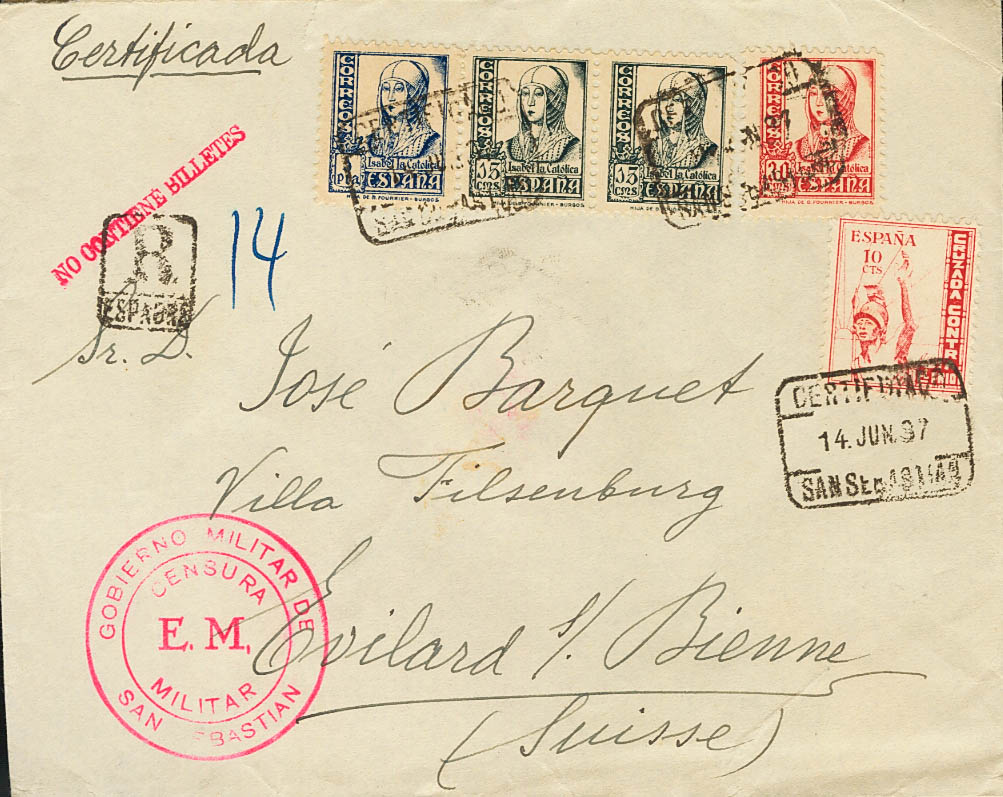 Certificada
CORREOS
Isabel la Católica
1 Pta
ESPAÑA
HIJA DE B. FOURNIER - BURGOS
CORREOS
Isabel la Católica
15 cms
ESPAÑA
FOURNIER - BURGOS
CORREOS
Isabel la Católica
15 cms
ESPAÑA
HIJA DE B.
CORREOS
30 cms
ESPAÑA
HIJA DE B. FOURNIER - BURGOS
NO CONTIENE BILLETES
R
ESPAÑA
14
ESPAÑA
10
CTS
CRUZADA CONTRA
CERTIFICADO
14. JUN. 37
SAN SEBASTIAN
Sr. D.
José Barquet
Villa Filsenburg
Evilard s/ Bienne
(Suisse)
GOBIERNO MILITAR DE
SAN SEBASTIAN
CENSURA
E. M.
MILITAR